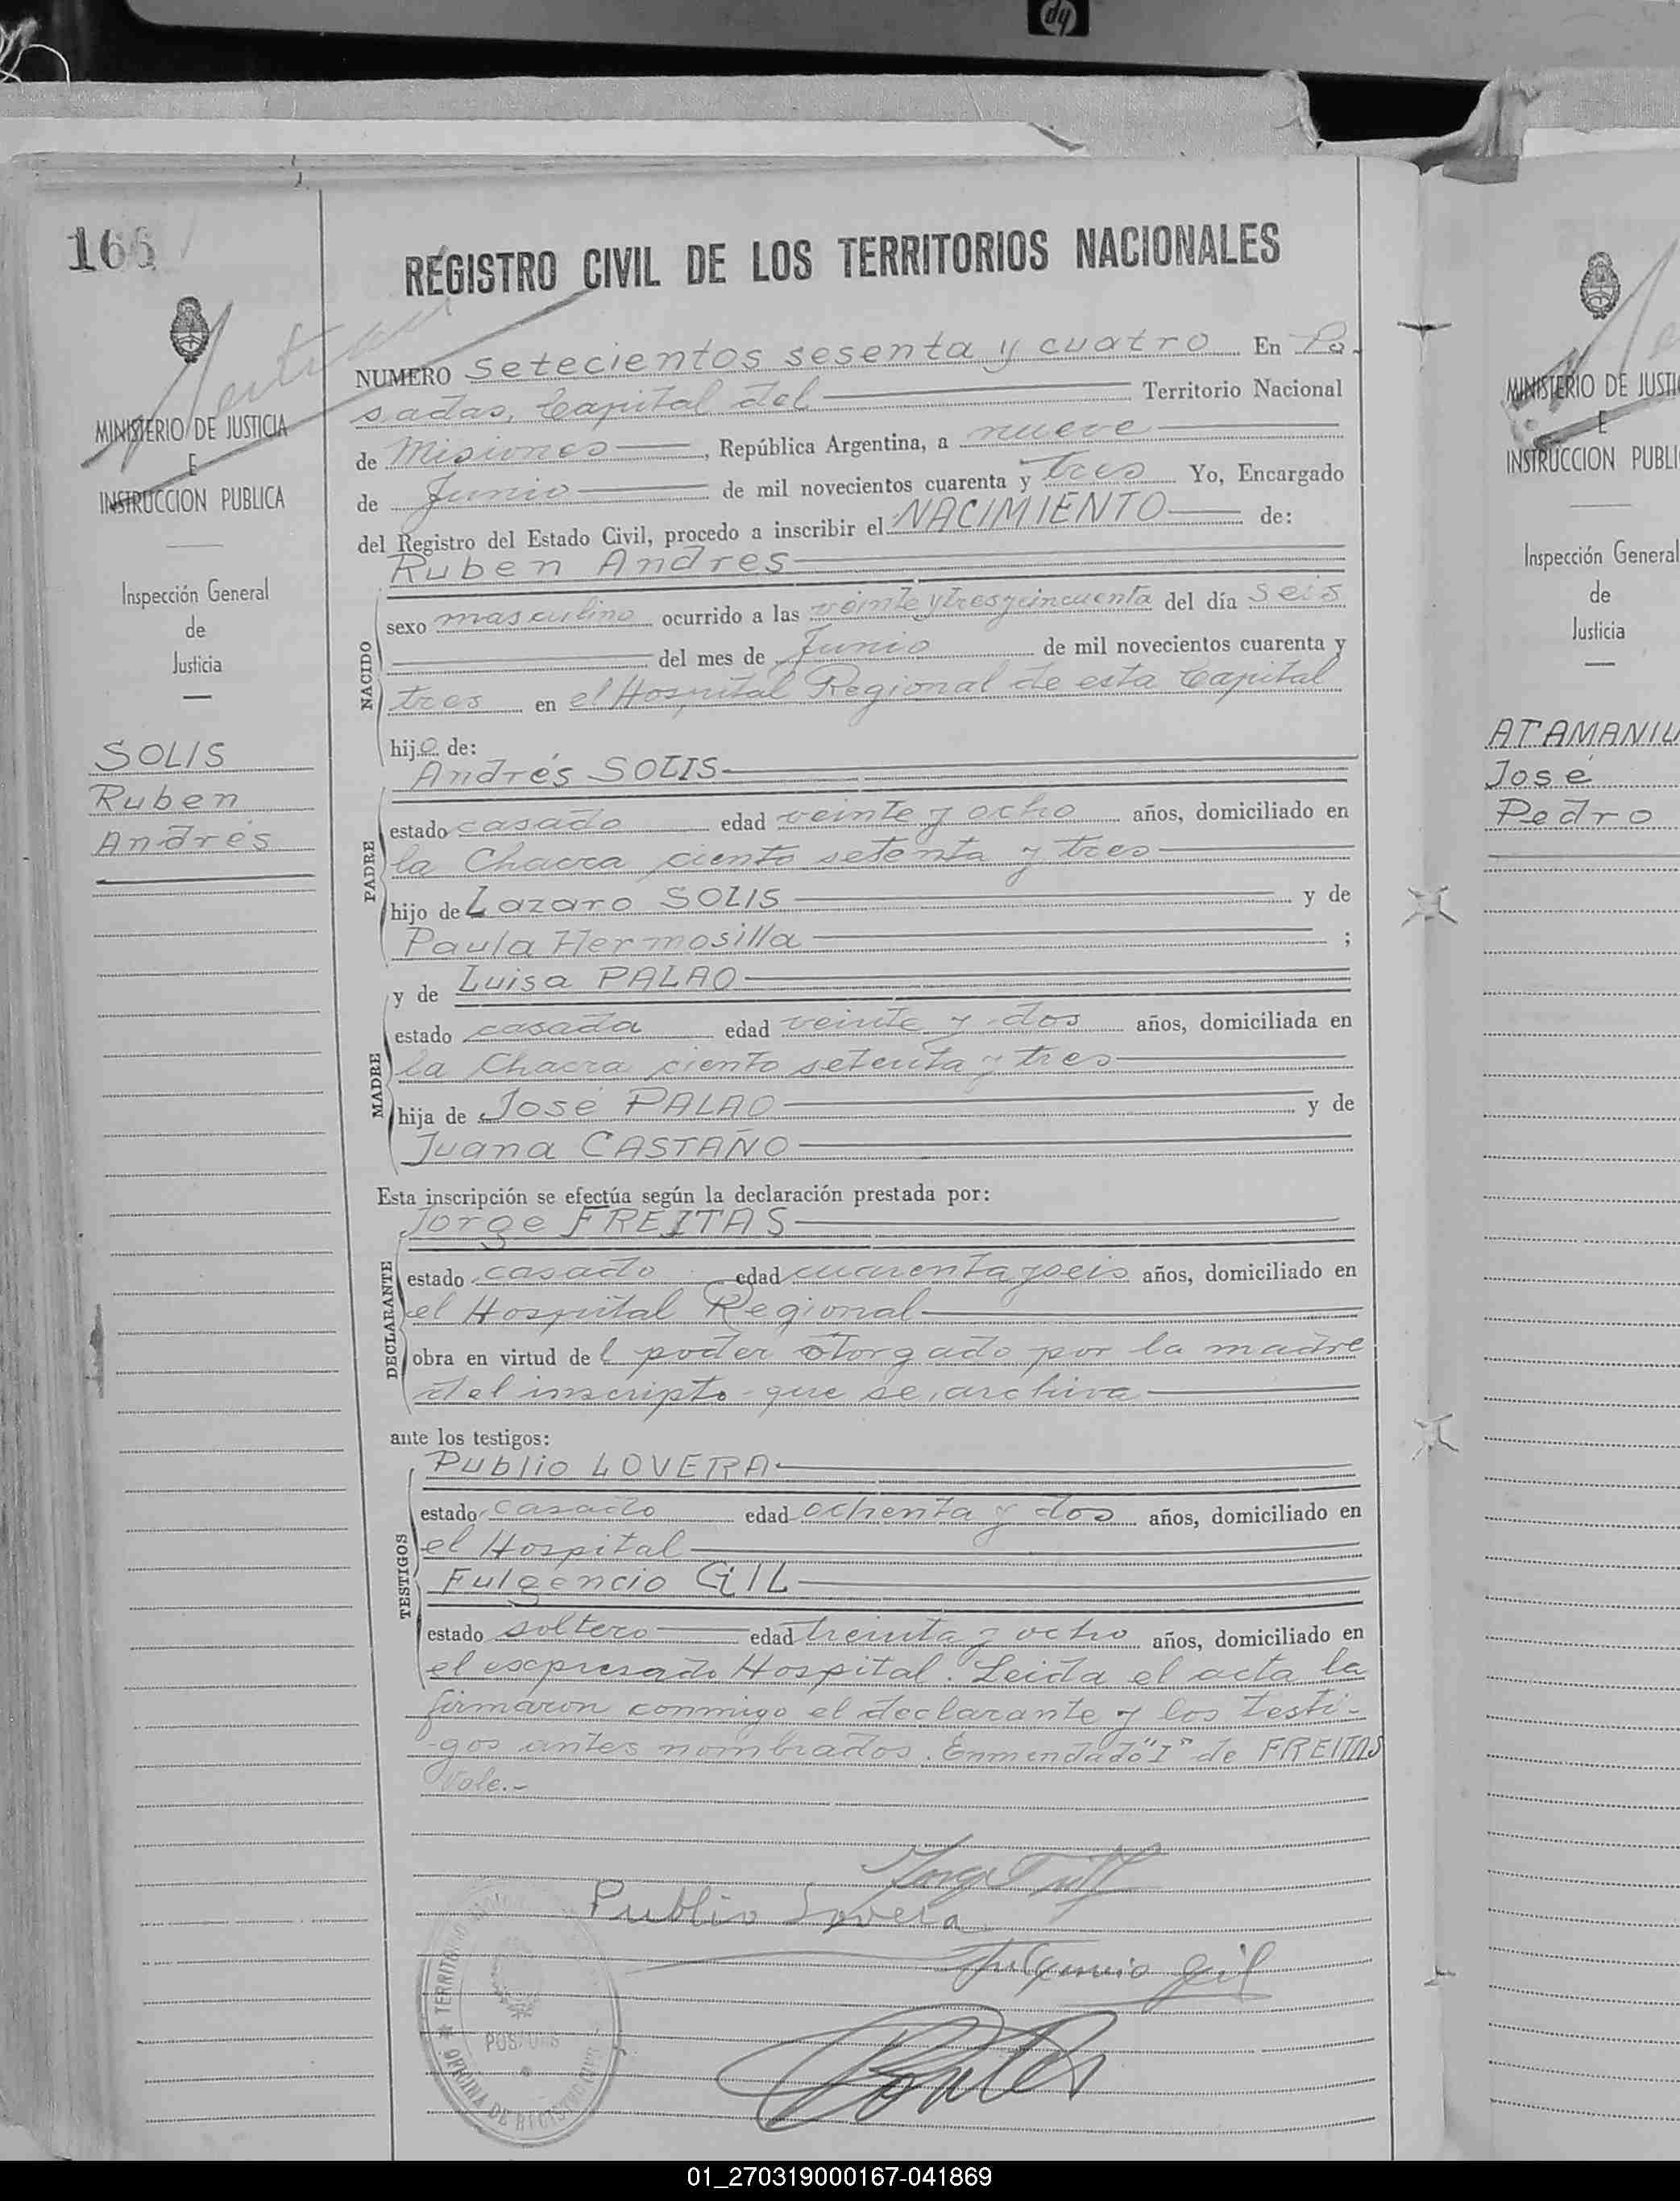 hp
166
REGISTRO CIVIL DE LOS TERRITORIOS NACIONALES
MINISTERIO DE JUSTICIA
E
INSTRUCCION PUBLICA
Inspección General
de
Justicia
SOLIS
Ruben
Andrés
NUMERO setecientos sesenta y cuatro En Po-
sadas, Capital del Territorio Nacional
de Misiones, República Argentina, a nueve
de Junio de mil novecientos cuarenta y tres Yo, Encargado
del Registro del Estado Civil, procedo a inscribir el NACIMIENTO de:
Ruben Andres
NACIDO
sexo masculino ocurrido a las veinte y tres y cincuenta del día seis
del mes de Junio de mil novecientos cuarenta y
tres en el Hospital Regional de esta Capital
hijo de:
Andrés SOLIS
PADRE
estado casado edad veinte y ocho años, domiciliado en
la Chacra ciento setenta y tres
hijo de Lazaro SOLIS y de
Paula Hermosilla ;
y de Luisa PALAO
MADRE
estado casada edad veinte y dos años, domiciliada en
la Chacra ciento setenta y tres
hija de José PALAO y de
Juana CASTAÑO
Esta inscripción se efectúa según la declaración prestada por:
Jorge FREITAS
DECLARANTE
estado casado edad cuarenta y seis años, domiciliado en
el Hospital Regional
obra en virtud del poder otorgado por la madre
del inscripto que se archiva
ante los testigos:
Publio LOVERA
TESTIGOS
estado casado edad ochenta y dos años, domiciliado en
el Hospital
Fulgencio GIL
estado soltero edad treinta y ocho años, domiciliado en
el expresado Hospital. Leida el acta la
firmaron conmigo el declarante y los testi-
gos antes nombrados. Enmendado "I" de FREITAS
Vale.-
Publio Lovera
Fulgencio Gil
TERRITORIO
POSADAS
OFICINA DE REGISTRO CIVIL
MINISTERIO DE JUSTI
E
INSTRUCCION PUBLI
Inspección General
de
Justicia
ATAMANIU
José
Pedro
01_270319000167-041869